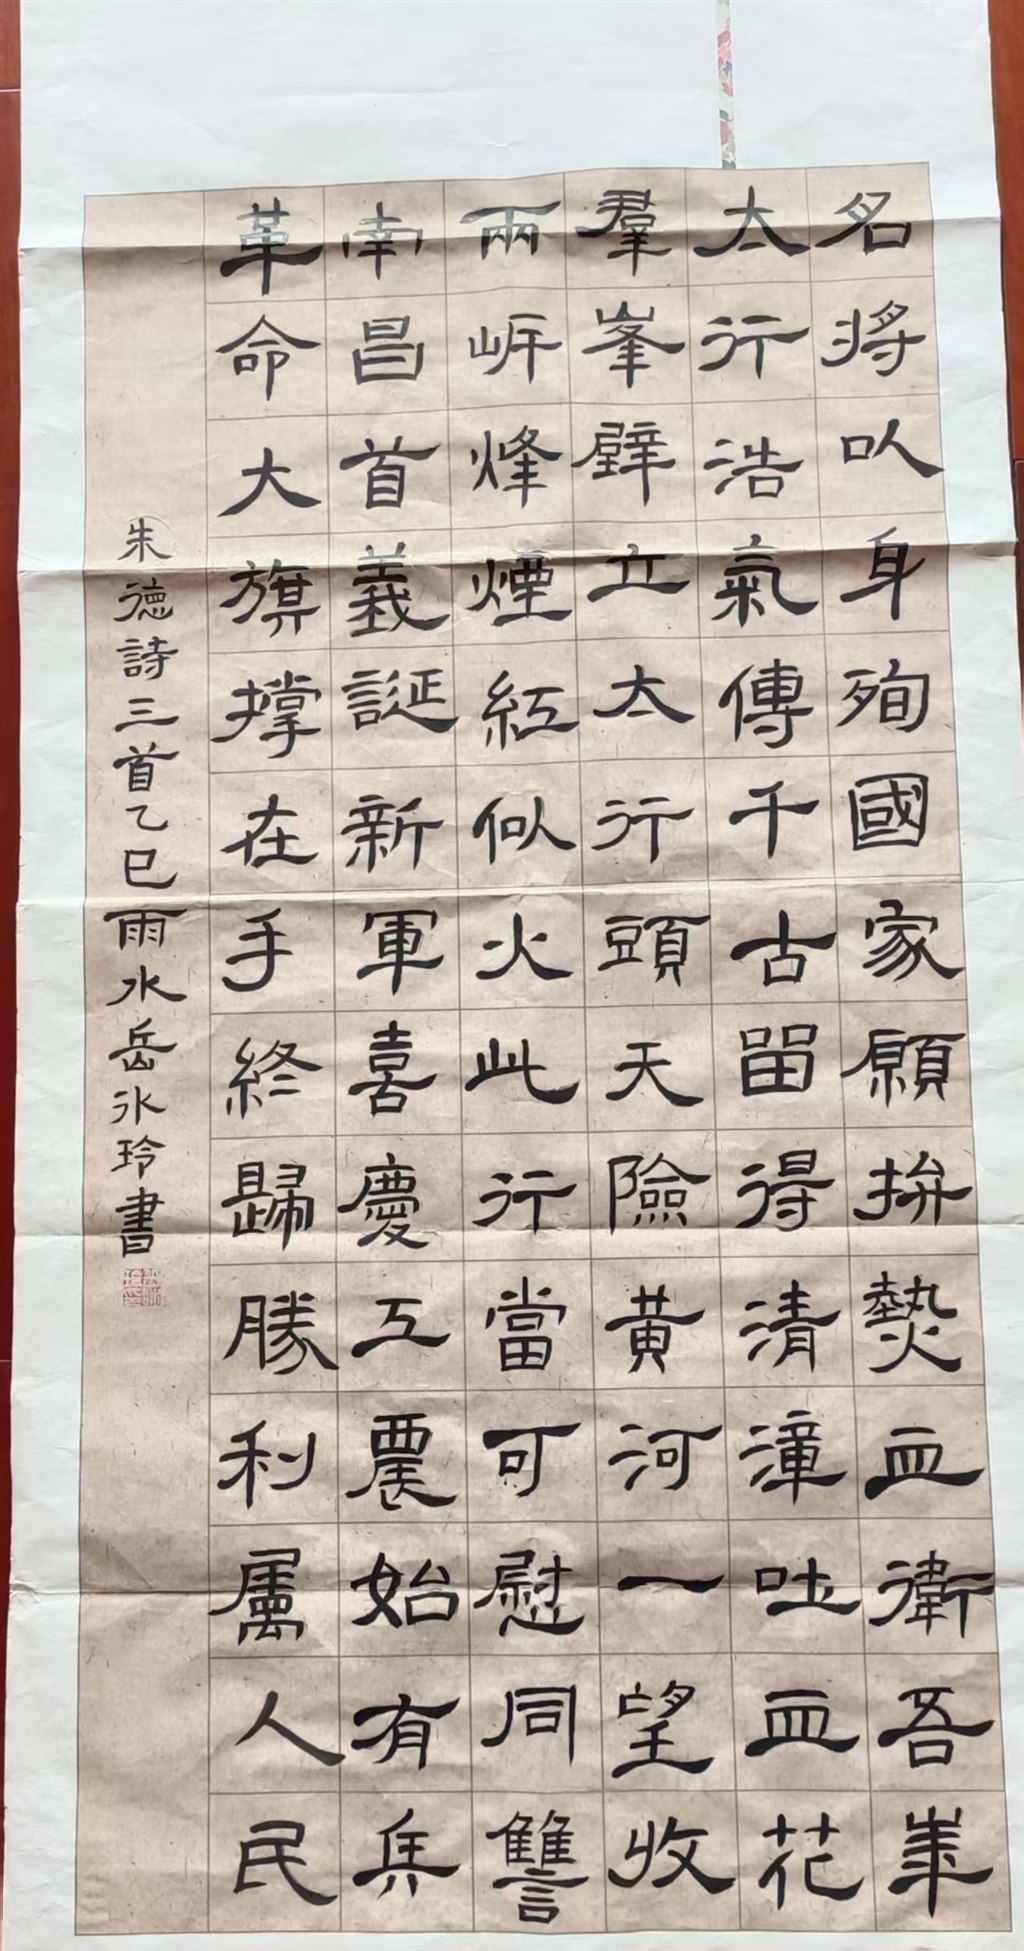 名將以身殉國家願拚熱血衛吾華
太行浩氣傳千古留得清漳吐血花
羣峯壁立太行頭天險黃河一望收
兩岸烽煙紅似火此行當可慰同讐
南昌首義誕新軍喜慶工農始有兵
革命大旗撐在手終歸勝利屬人民
朱德詩三首乙巳雨水岳冰玲書